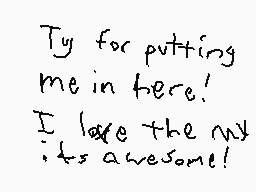 Ty for putting
me in here!
I love the mv
its awesome!